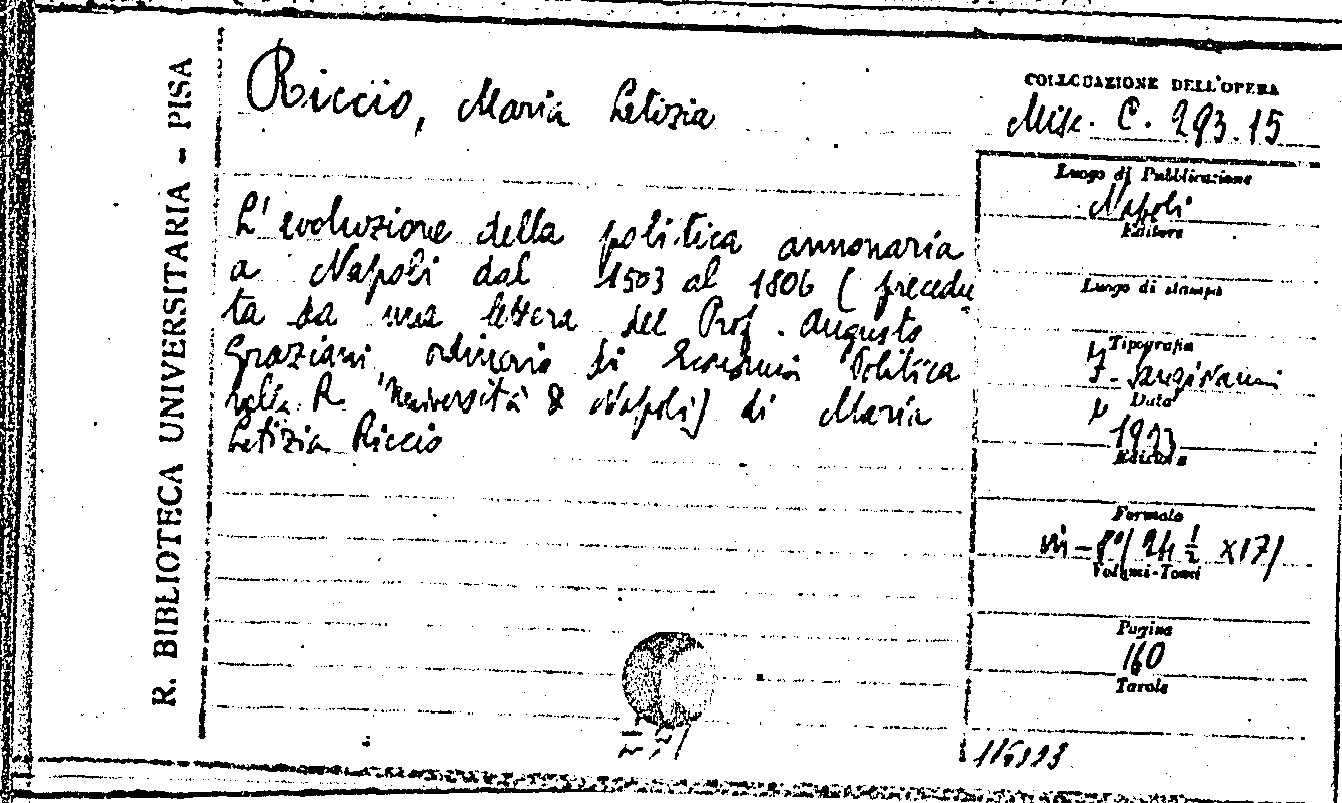 R. BIBLIOTECA UNIVERSITARIA - PISA
Riccio, Maria Letizia
L'evoluzione della politica annonaria
a Napoli dal 1503 al 1806 (precedu-
ta da una lettera del Prof. Augusto
Graziani, ordinario di Economia Politica
nella R. Università di Napoli) di Maria
Letizia Riccio
COLLOCAZIONE DELL'OPERA
Misc. C. 293.15
Luogo di Pubblicazione
Napoli
Editore
Luogo di stampa
Tipografia
F. Sangiovanni
Data
1923
Edizione
Formato
in-8°/24 1/2 x17/
Volumi-Tomi
Pagine
160
Tavole